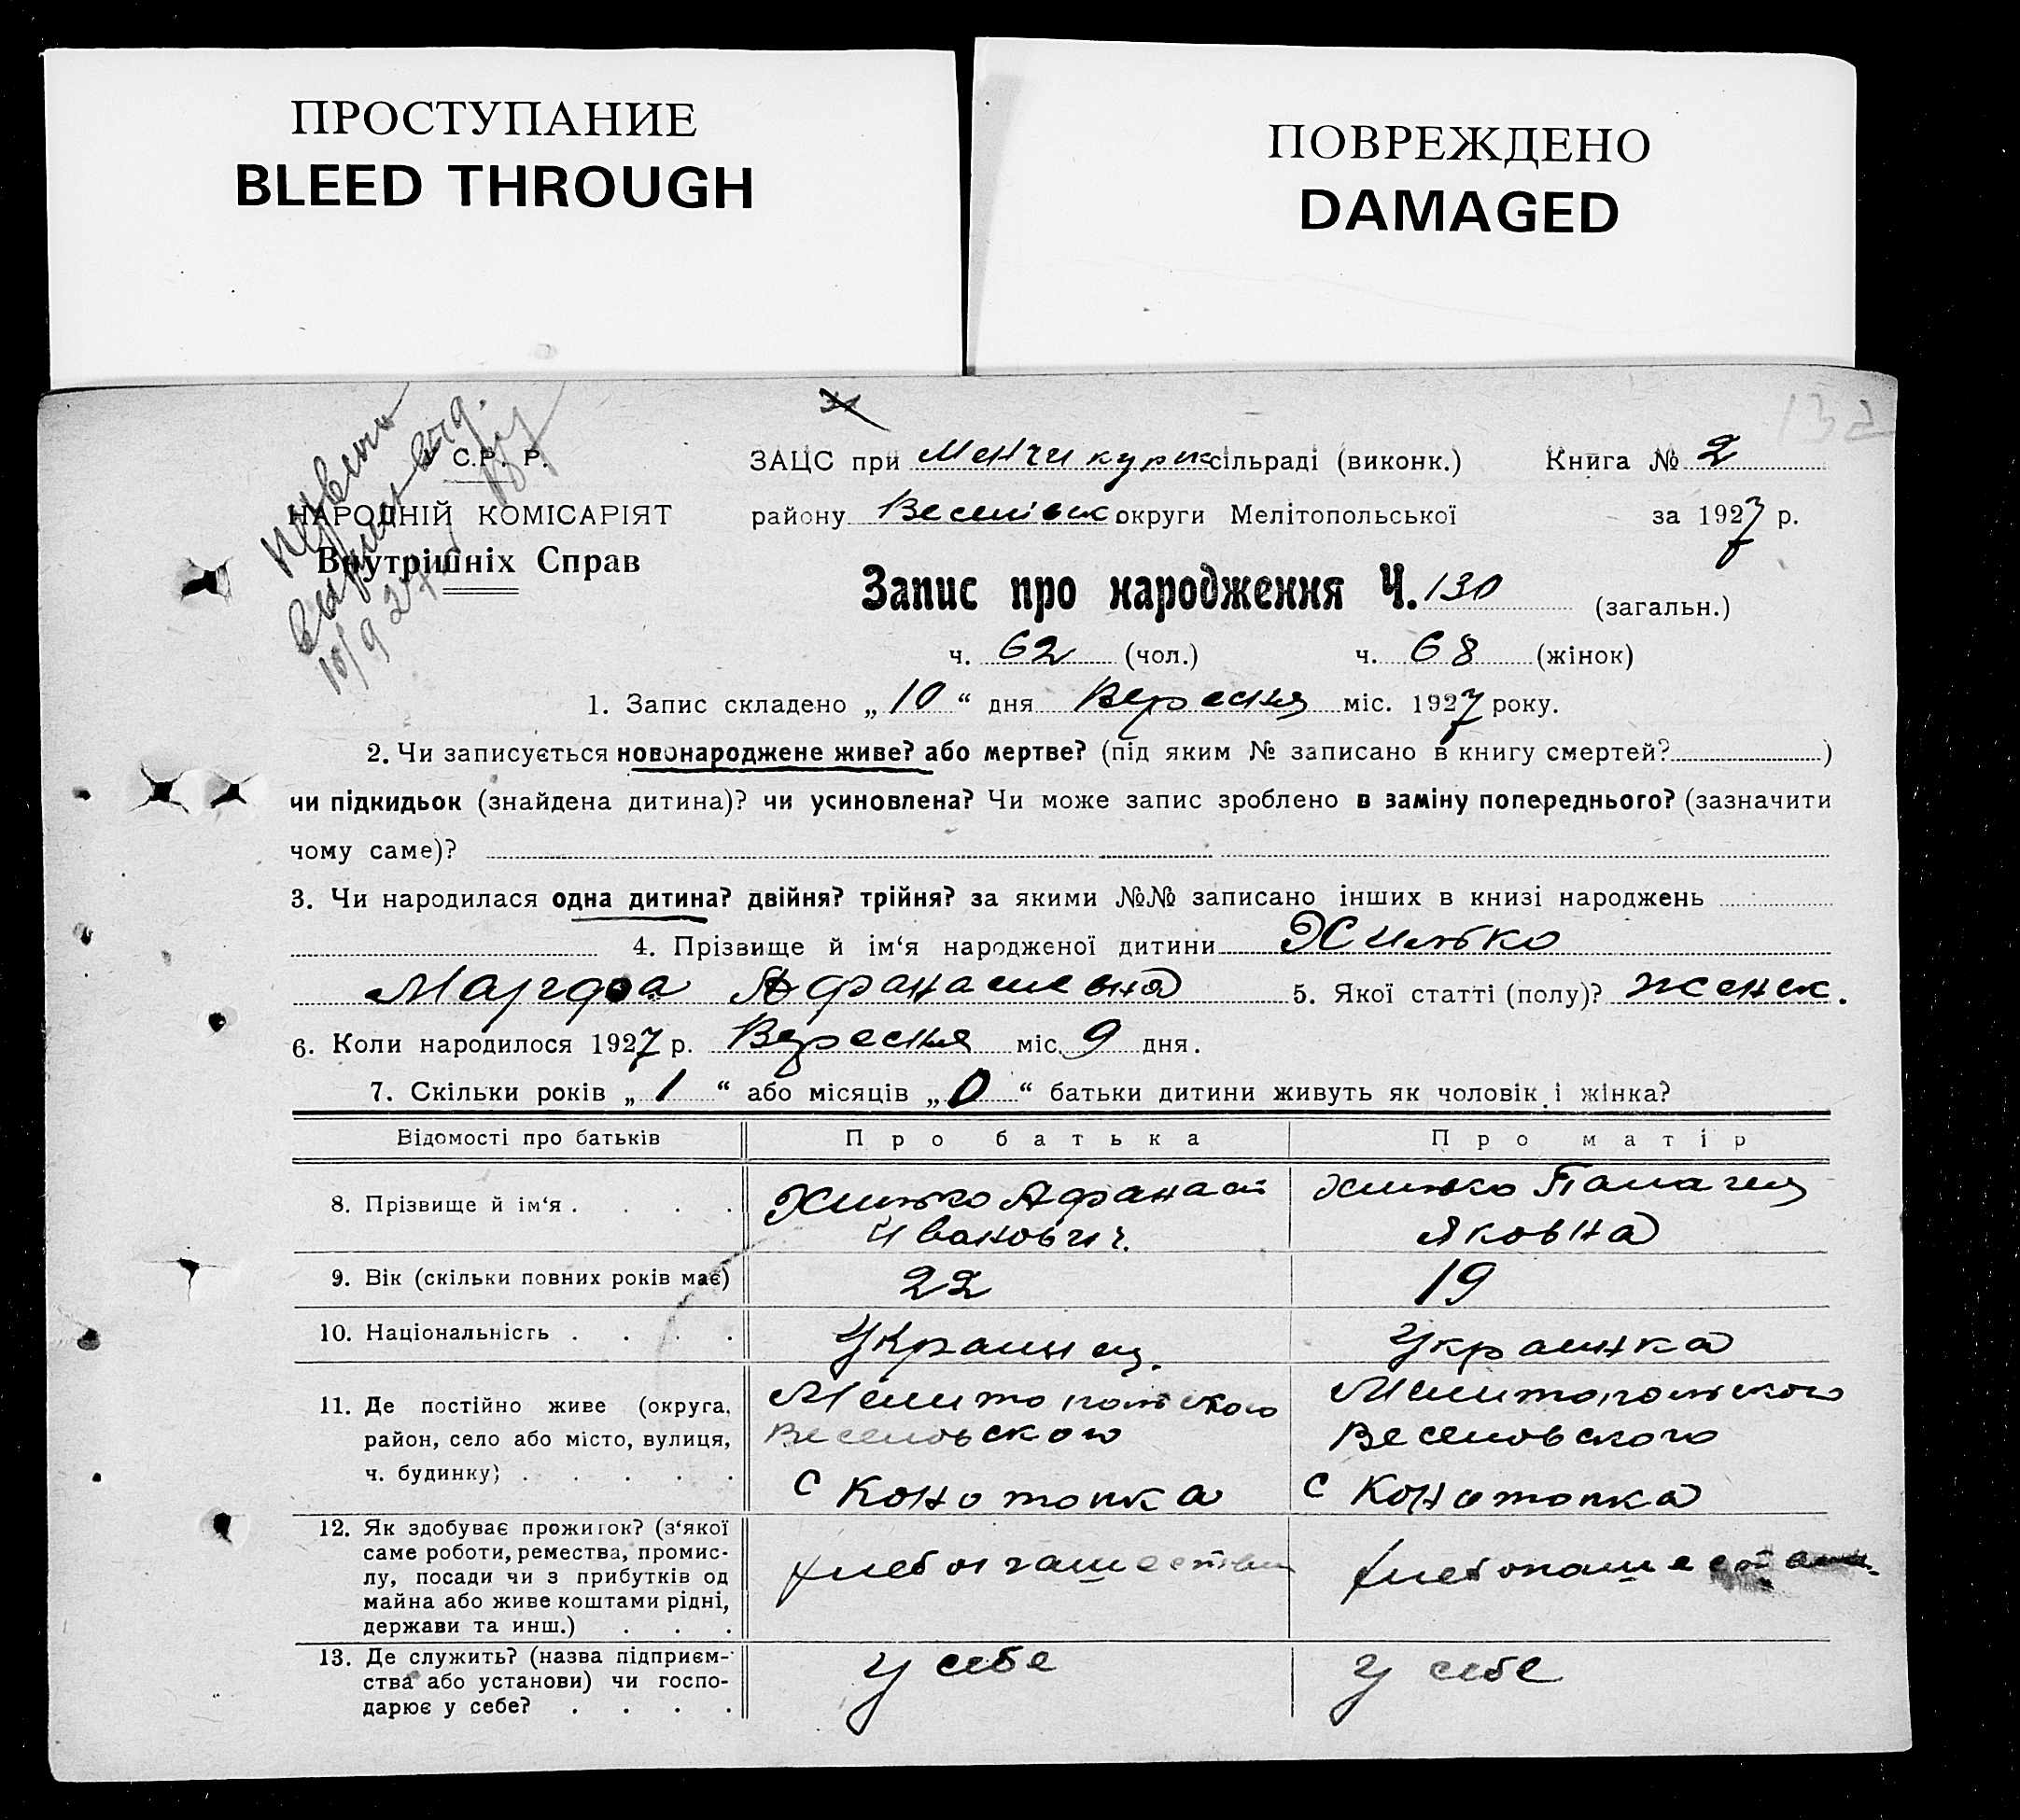 ПРОСТУПАНИЕ
BLEED THROUGH
ПОВРЕЖДЕНО
DAMAGED
132
У С.Р. Р.
НАРОДНІЙ КОМІСАРІЯТ
Внутрішніх Справ
10/9 27
ЗАЦС при Менчикурик сільраді (виконк.) Книга № 2
району Веселівськ округи Мелітопольської за 1927 р.
Запис про народження Ч. 130 (загальн.)
ч. 62 (чол.) ч. 68 (жінок)
1. Запис складено „ 10 “ дня Вересня міс. 1927 року.
2. Чи записується новонароджене живе? або мертве? (під яким № записано в книгу смертей? )
чи підкидьок (знайдена дитина)? чи усиновлена? Чи може запис зроблено в заміну попереднього? (зазначити
чому саме)?
3. Чи народилася одна дитина? двійня? трійня? за якими №№ записано інших в книзі народжень
4. Прізвище й ім‘я народженої дитини Хилько
Марфа Афанасиевна 5. Якої статті (полу)? женск.
6. Коли народилося 1927 р. Вересня міс. 9 дня.
7. Скільки років „ 1 “ або місяців „ 0 “ батьки дитини живуть як чоловік і жінка?
Відомості про батьків Про батька Про матір
8. Прізвище й ім‘я . . . . Хилько Афанасі Хилько Палагея
Иванович. Яковна
9. Вік (скільки повних років має) 22 19
10. Національність . . . . Украинец. Украинка
11. Де постійно живе (округа, Мелитопольского Мелитопольского
район, село або місто, вулиця, Веселовского Веселовского
ч. будинку) . . . . . с Конотопка с Конотопка
12. Як здобуває прожиток? (з‘якої
саме роботи, ремества, промис-
лу, посади чи з прибутків од хлебопашеством хлебопашеством
майна або живе коштами рідні,
держави та инш.) . . .
13. Де служить? (назва підприєм- у себе у себе
ства або установи) чи госпо-
дарює у себе? . . . .